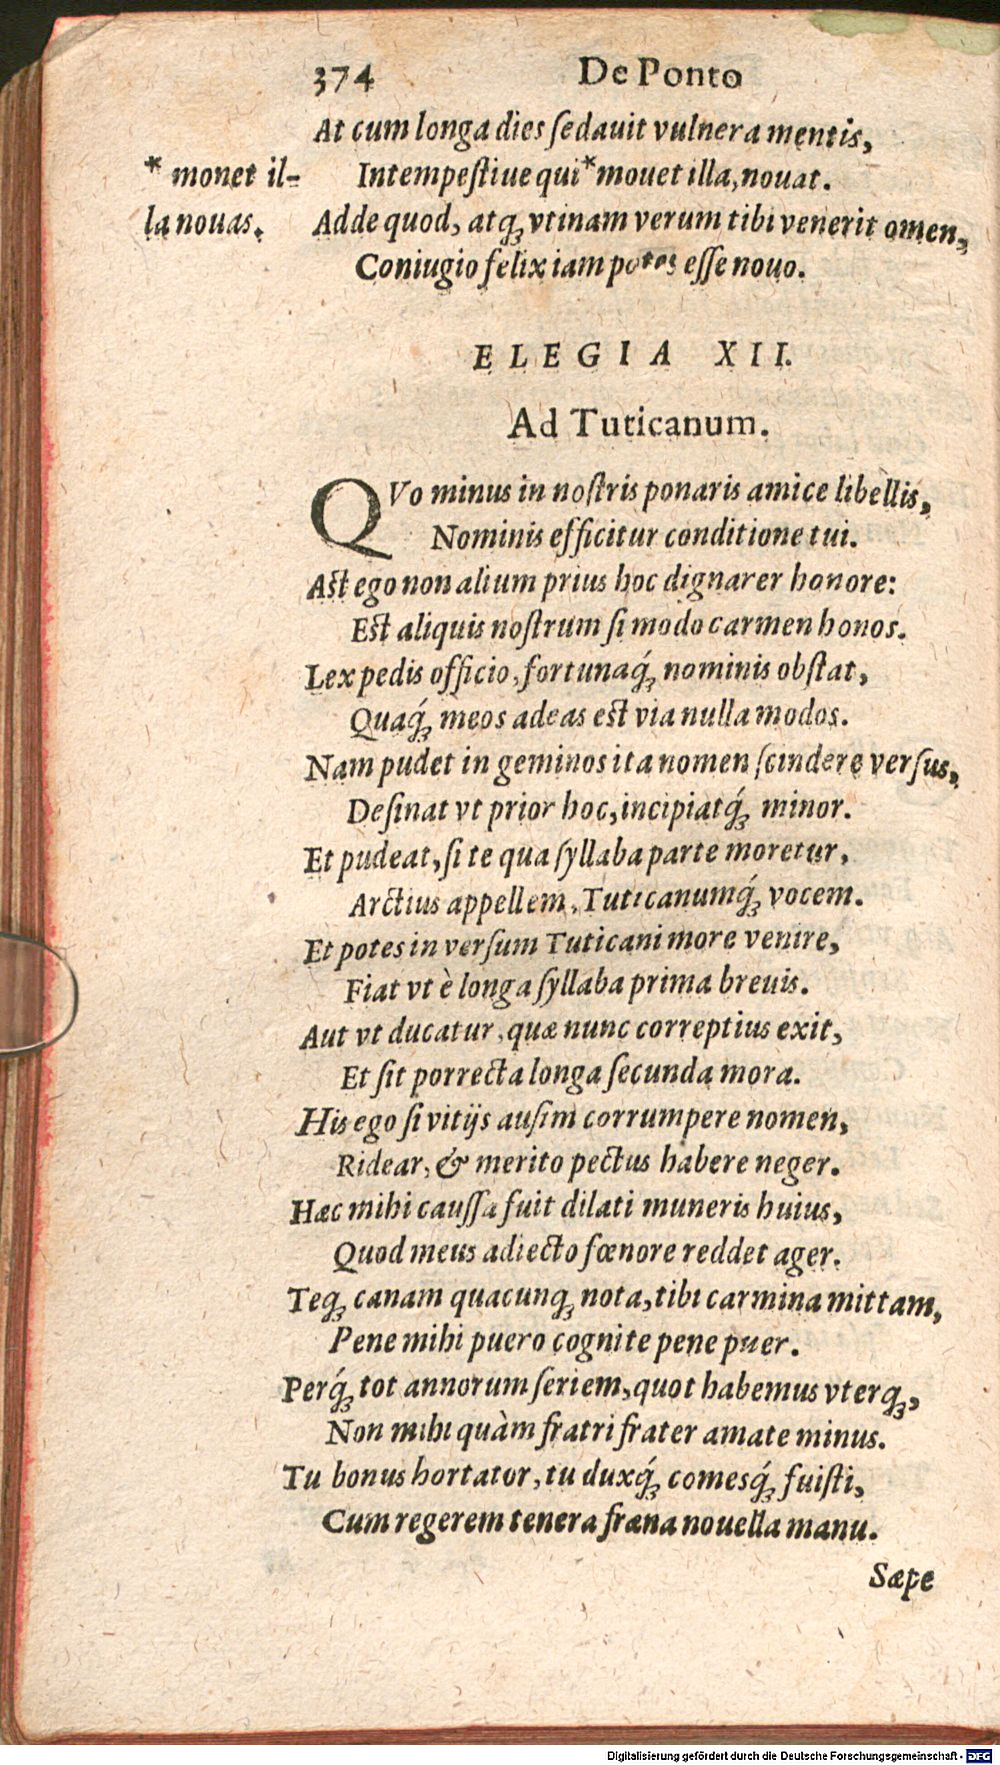 374 De Ponto
At cum longa dies ſedauit vulnera mentis,
Intempeſtiue qui * mouet illa, nouat.
* monet il-
la nouas.
Adde quod, atq; vtinam verum tibi venerit omen,
Coniugio felix iam potes eſſe nouo.
ELEGIA XII.
Ad Tuticanum.
QVo minus in noſtris ponaris amice libellis,
Nominis efficitur conditione tui.
Aſt ego non alium prius hoc dignarer honore:
Eſt aliquis noſtrum ſi modo carmen honos.
Lex pedis officio, fortunaq́; nominis obſtat,
Quaq́; meos adeas eſt via nulla modos.
Nam pudet in geminos ita nomen ſcindere verſus,
Deſinat vt prior hoc, incipiatq́; minor.
Et pudeat, ſi te qua ſyllaba parte moretur,
Arctius appellem, Tuticanumq́; vocem.
Et potes in verſum Tuticani more venire,
Fiat vt è longa ſyllaba prima breuis.
Aut vt ducatur, quæ nunc correptius exit,
Et ſit porrecta longa ſecunda mora.
His ego ſi vitijs auſim corrumpere nomen,
Ridear, & merito pectus habere neger.
Hæc mihi cauſſa fuit dilati muneris huius,
Quod meus adiecto fœnore reddet ager.
Teq; canam quacunq; nota, tibi carmina mittam,
Pene mihi puero cognite pene puer.
Perq́; tot annorum ſeriem, quot habemus vterq;,
Non mihi quàm fratri frater amate minus.
Tu bonus hortator, tu duxq́; comesq́; fuiſti,
Cum regerem tenera fræna nouella manu.
Sæpe
Digitalisierung gefördert durch die Deutsche Forschungsgemeinschaft - DFG